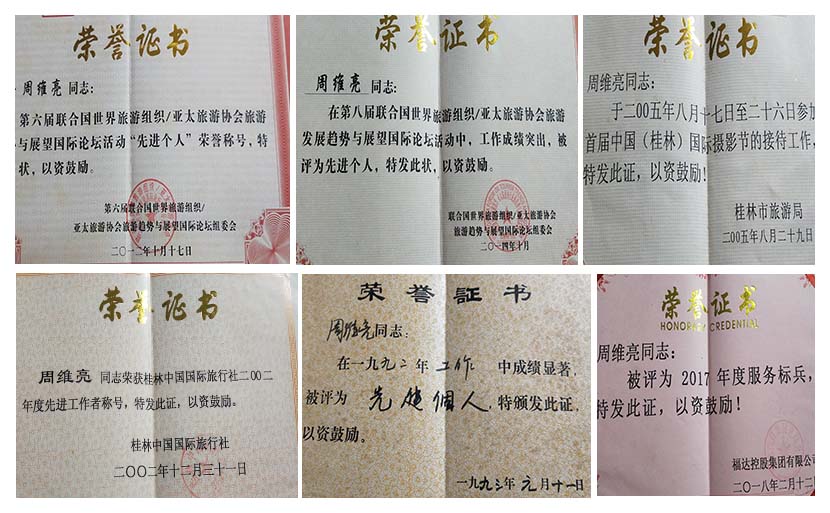 荣誉证书
周维亮 同志:
第六届联合国世界旅游组织/亚太旅游协会旅游
与展望国际论坛活动“先进个人”荣誉称号,特
状,以资鼓励。
第六届联合国世界旅游组织/
亚太旅游协会旅游趋势与展望国际论坛组委会
二〇一二年十月十七日
荣誉证书
周维亮 同志:
在第八届联合国世界旅游组织/亚太旅游协会旅游
发展趋势与展望国际论坛活动中,工作成绩突出,被
评为先进个人,特发此状,以资鼓励。
联合国世界旅游组织/亚太旅游协会
旅游趋势与展望国际论坛组委会
二〇一四年十月
荣誉证书
周维亮同志:
于二00五年八月十七日至二十六日参加
首届中国(桂林)国际摄影节的接待工作,
特发此证,以资鼓励!
桂林市旅游局
二00五年八月二十九日
荣誉证书
周维亮 同志荣获桂林中国国际旅行社二00二
年度先进工作者称号,特发此证,以资鼓励。
桂林中国国际旅行社
二〇〇二年十二月三十一日
荣誉証书
周维亮同志:
在一九九二年 工作 中成绩显著,
被评为 先进個人,特颁发此证,
以资鼓励。
一九九三年 元 月十一日
荣誉证书
HONORARY CREDENTIAL
周维亮同志:
被评为 2017 年度服务标兵,
特发此证,以资鼓励!
福达控股集团有限公司
二〇一八年二月十二